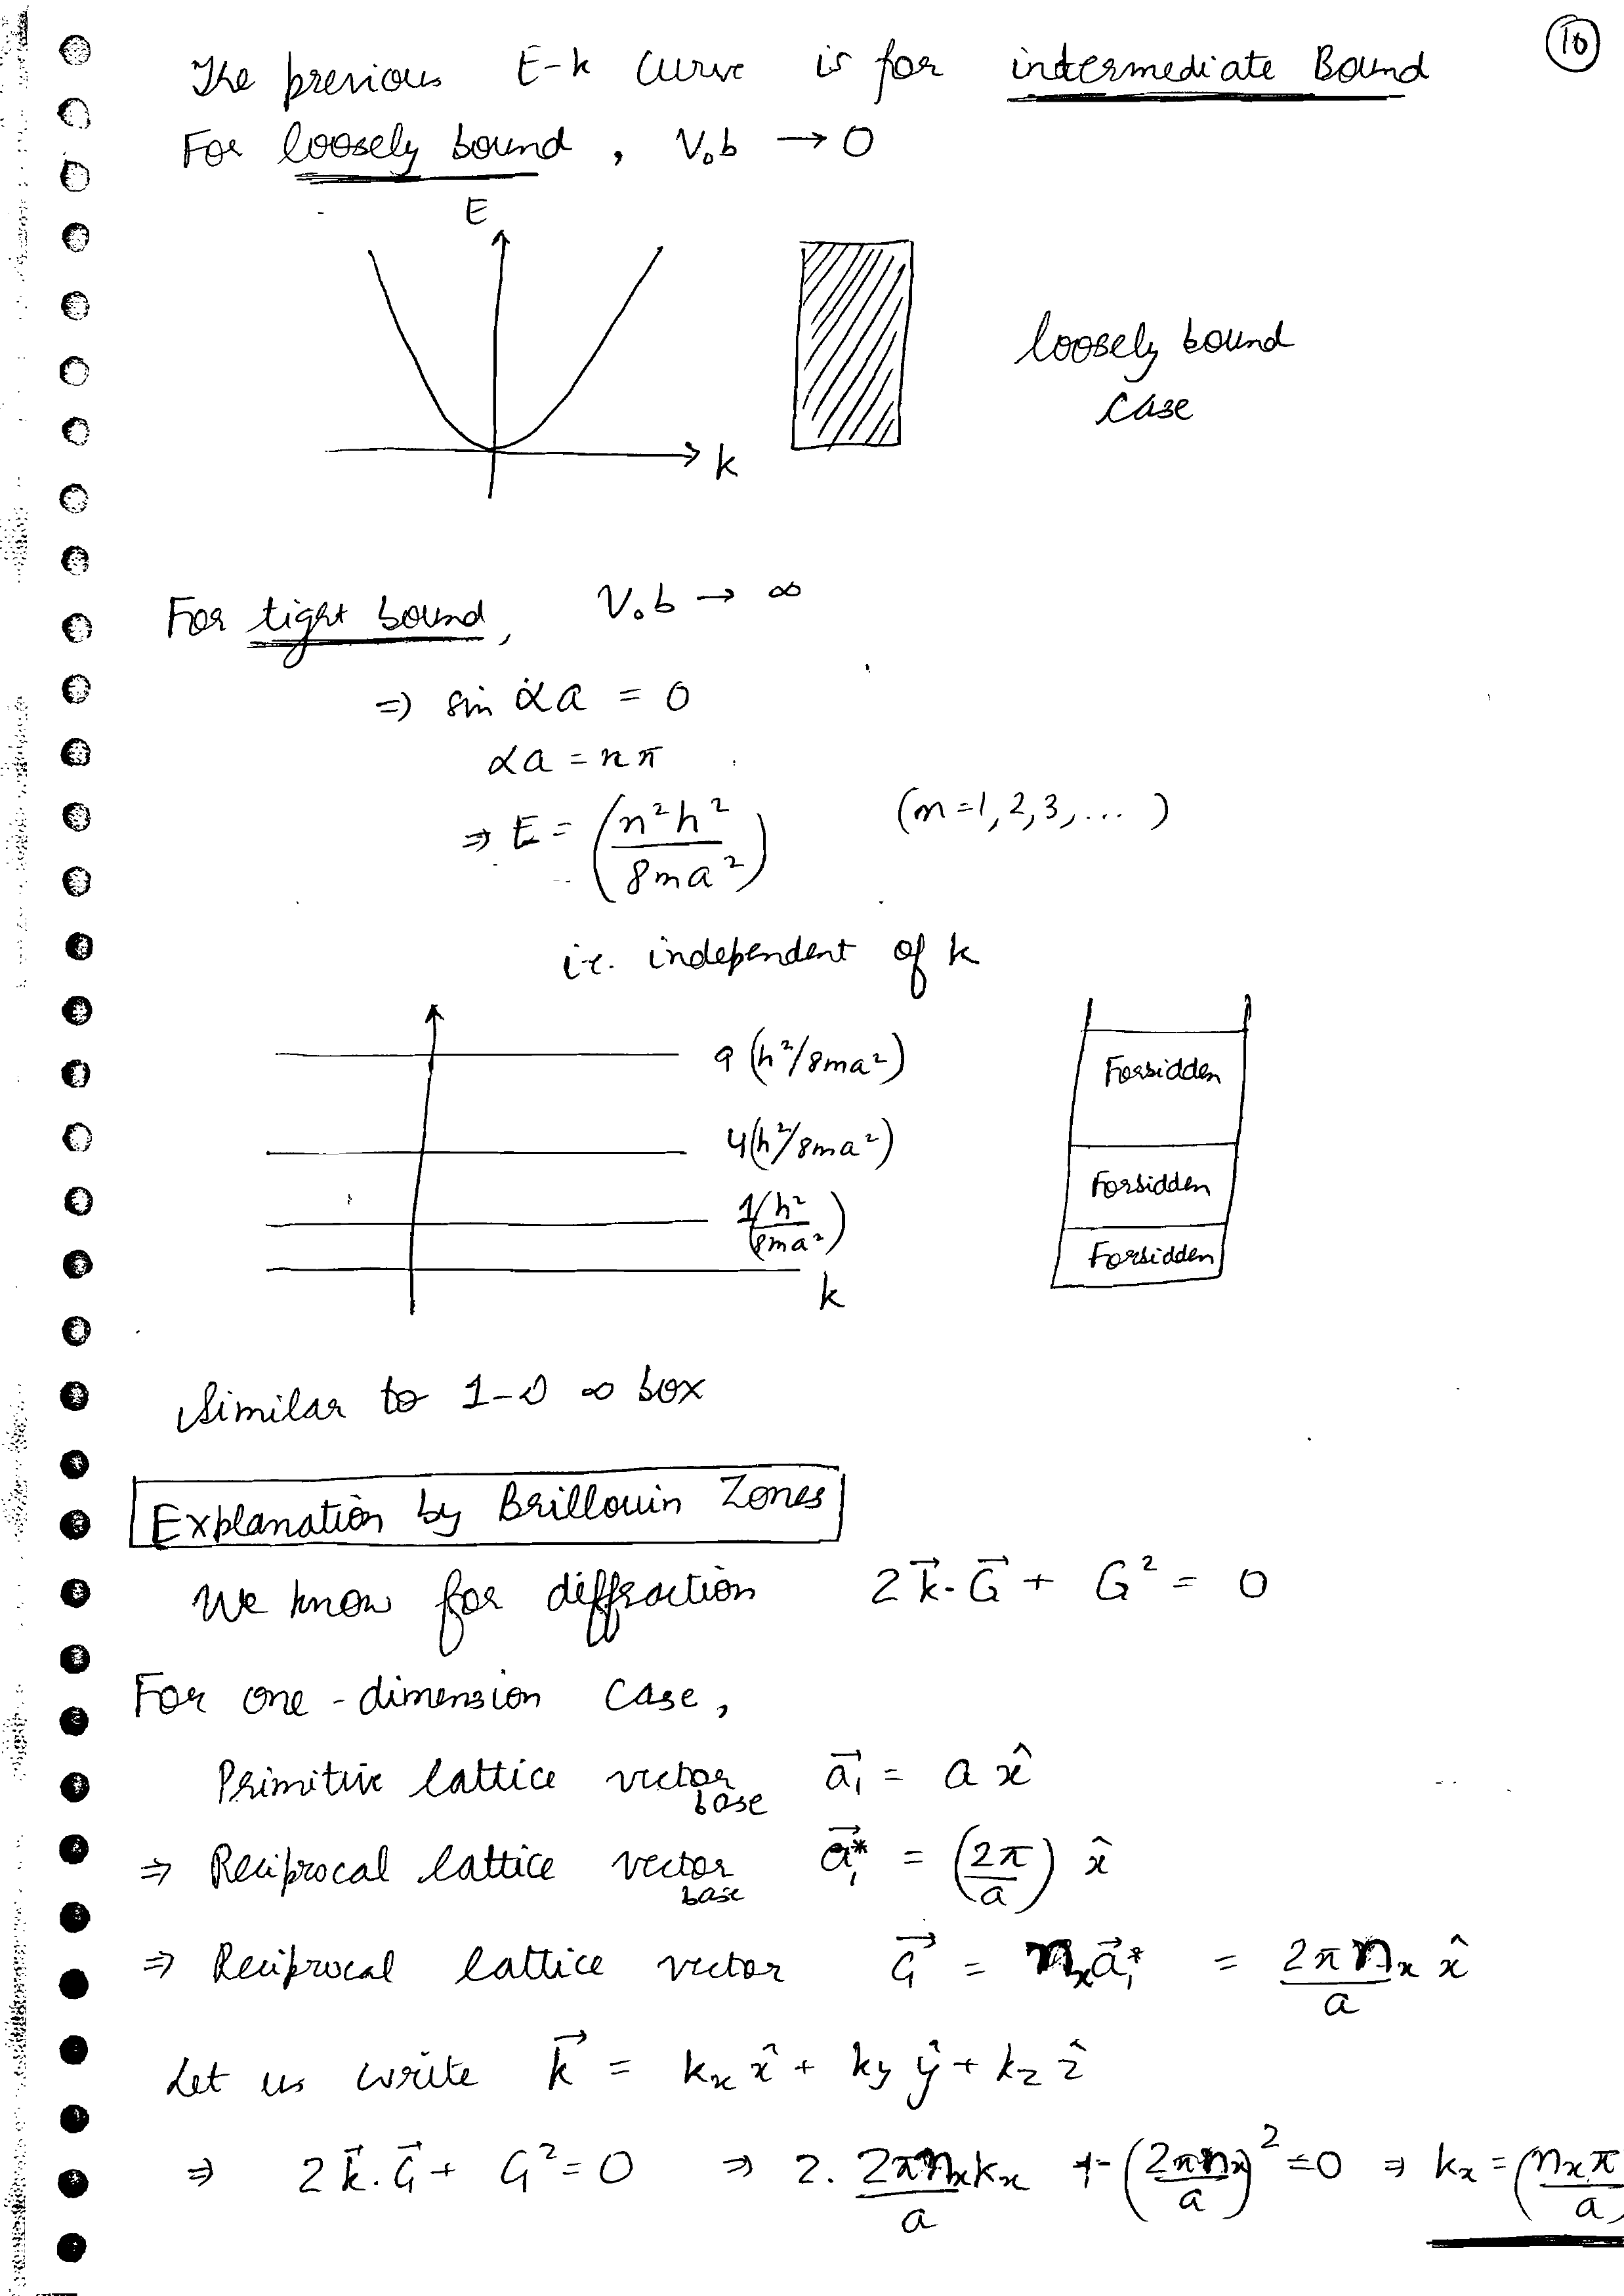 10
The previous E-k Curve is for intermediate Bound
For loosely bound, V₀b → 0
E
k
loosely bound
case
For tight bound, V₀b → ∞
⇒ sin αa = 0
αa = nπ
⇒ E = (n²h²/8ma²) (n=1,2,3,...)
i.e. independent of k
9(h²/8ma²)
Forbidden
4(h²/8ma²)
Forbidden
1(h²/8ma²)
Forbidden
k
Similar to 1-D ∞ box
Explanation by Brillouin Zones
We know for diffraction 2k⃗.G⃗ + G² = 0
For one-dimension case,
Primitive lattice vector base a⃗₁ = a x̂
⇒ Reciprocal lattice vector base a⃗₁* = (2π/a) x̂
⇒ Reciprocal lattice vector G⃗ = nₓa⃗₁* = 2πnₓ/a x̂
Let us write k⃗ = kₓ x̂ + ky ŷ + kz ẑ
⇒ 2k⃗.G⃗ + G² = 0 ⇒ 2. 2πnₓ/a kₓ + (2πnₓ/a)² = 0 ⇒ kₓ = (nₓπ/a)